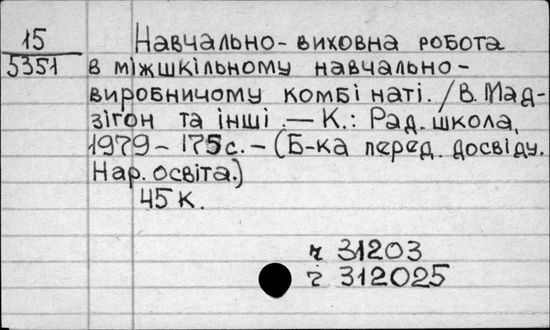 15
5351
Навчально-виховна робота
в міжшкільному навчально-
виробничому комбінаті. /В. Мад-
зігон та інші.— К.: Рад. школа,
1979 – 175с. – (Б-ка перед. досвіду.
Нар. освіта.)
45к.
ч 31203
ч 312025